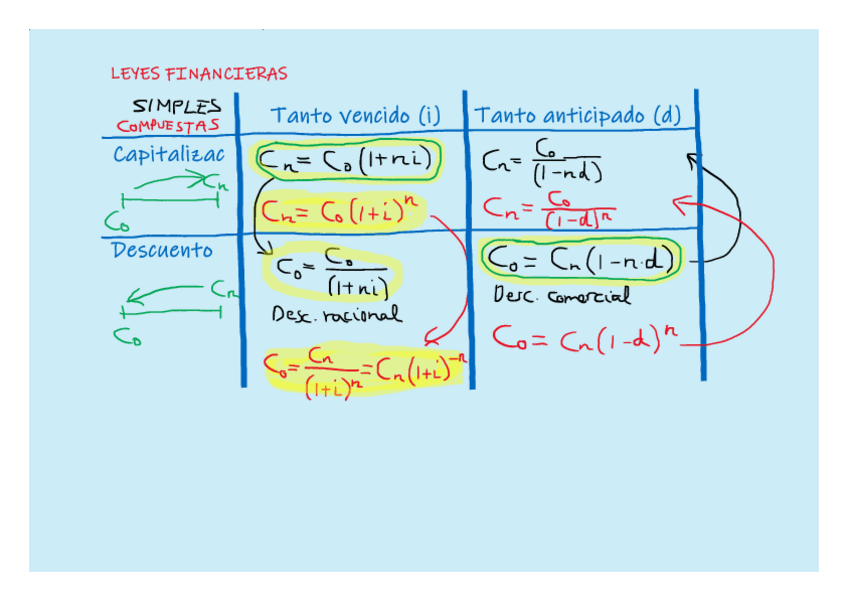 LEYES FINANCIERAS
SIMPLES
COMPUESTAS
Tanto vencido (i)
Tanto anticipado (d)
Capitalizac
Cn
C0
Cn = C0 (1+ni)
Cn = C0/(1-nd)
Cn = C0 (1+i)^n
Cn = C0/(1-d)^n
Descuento
Cn
C0
C0 = C0/(1+ni)
Desc. racional
C0 = Cn (1-n·d)
Desc. comercial
C0 = Cn/(1+i)^n = Cn (1+i)^-n
C0 = Cn (1-d)^n